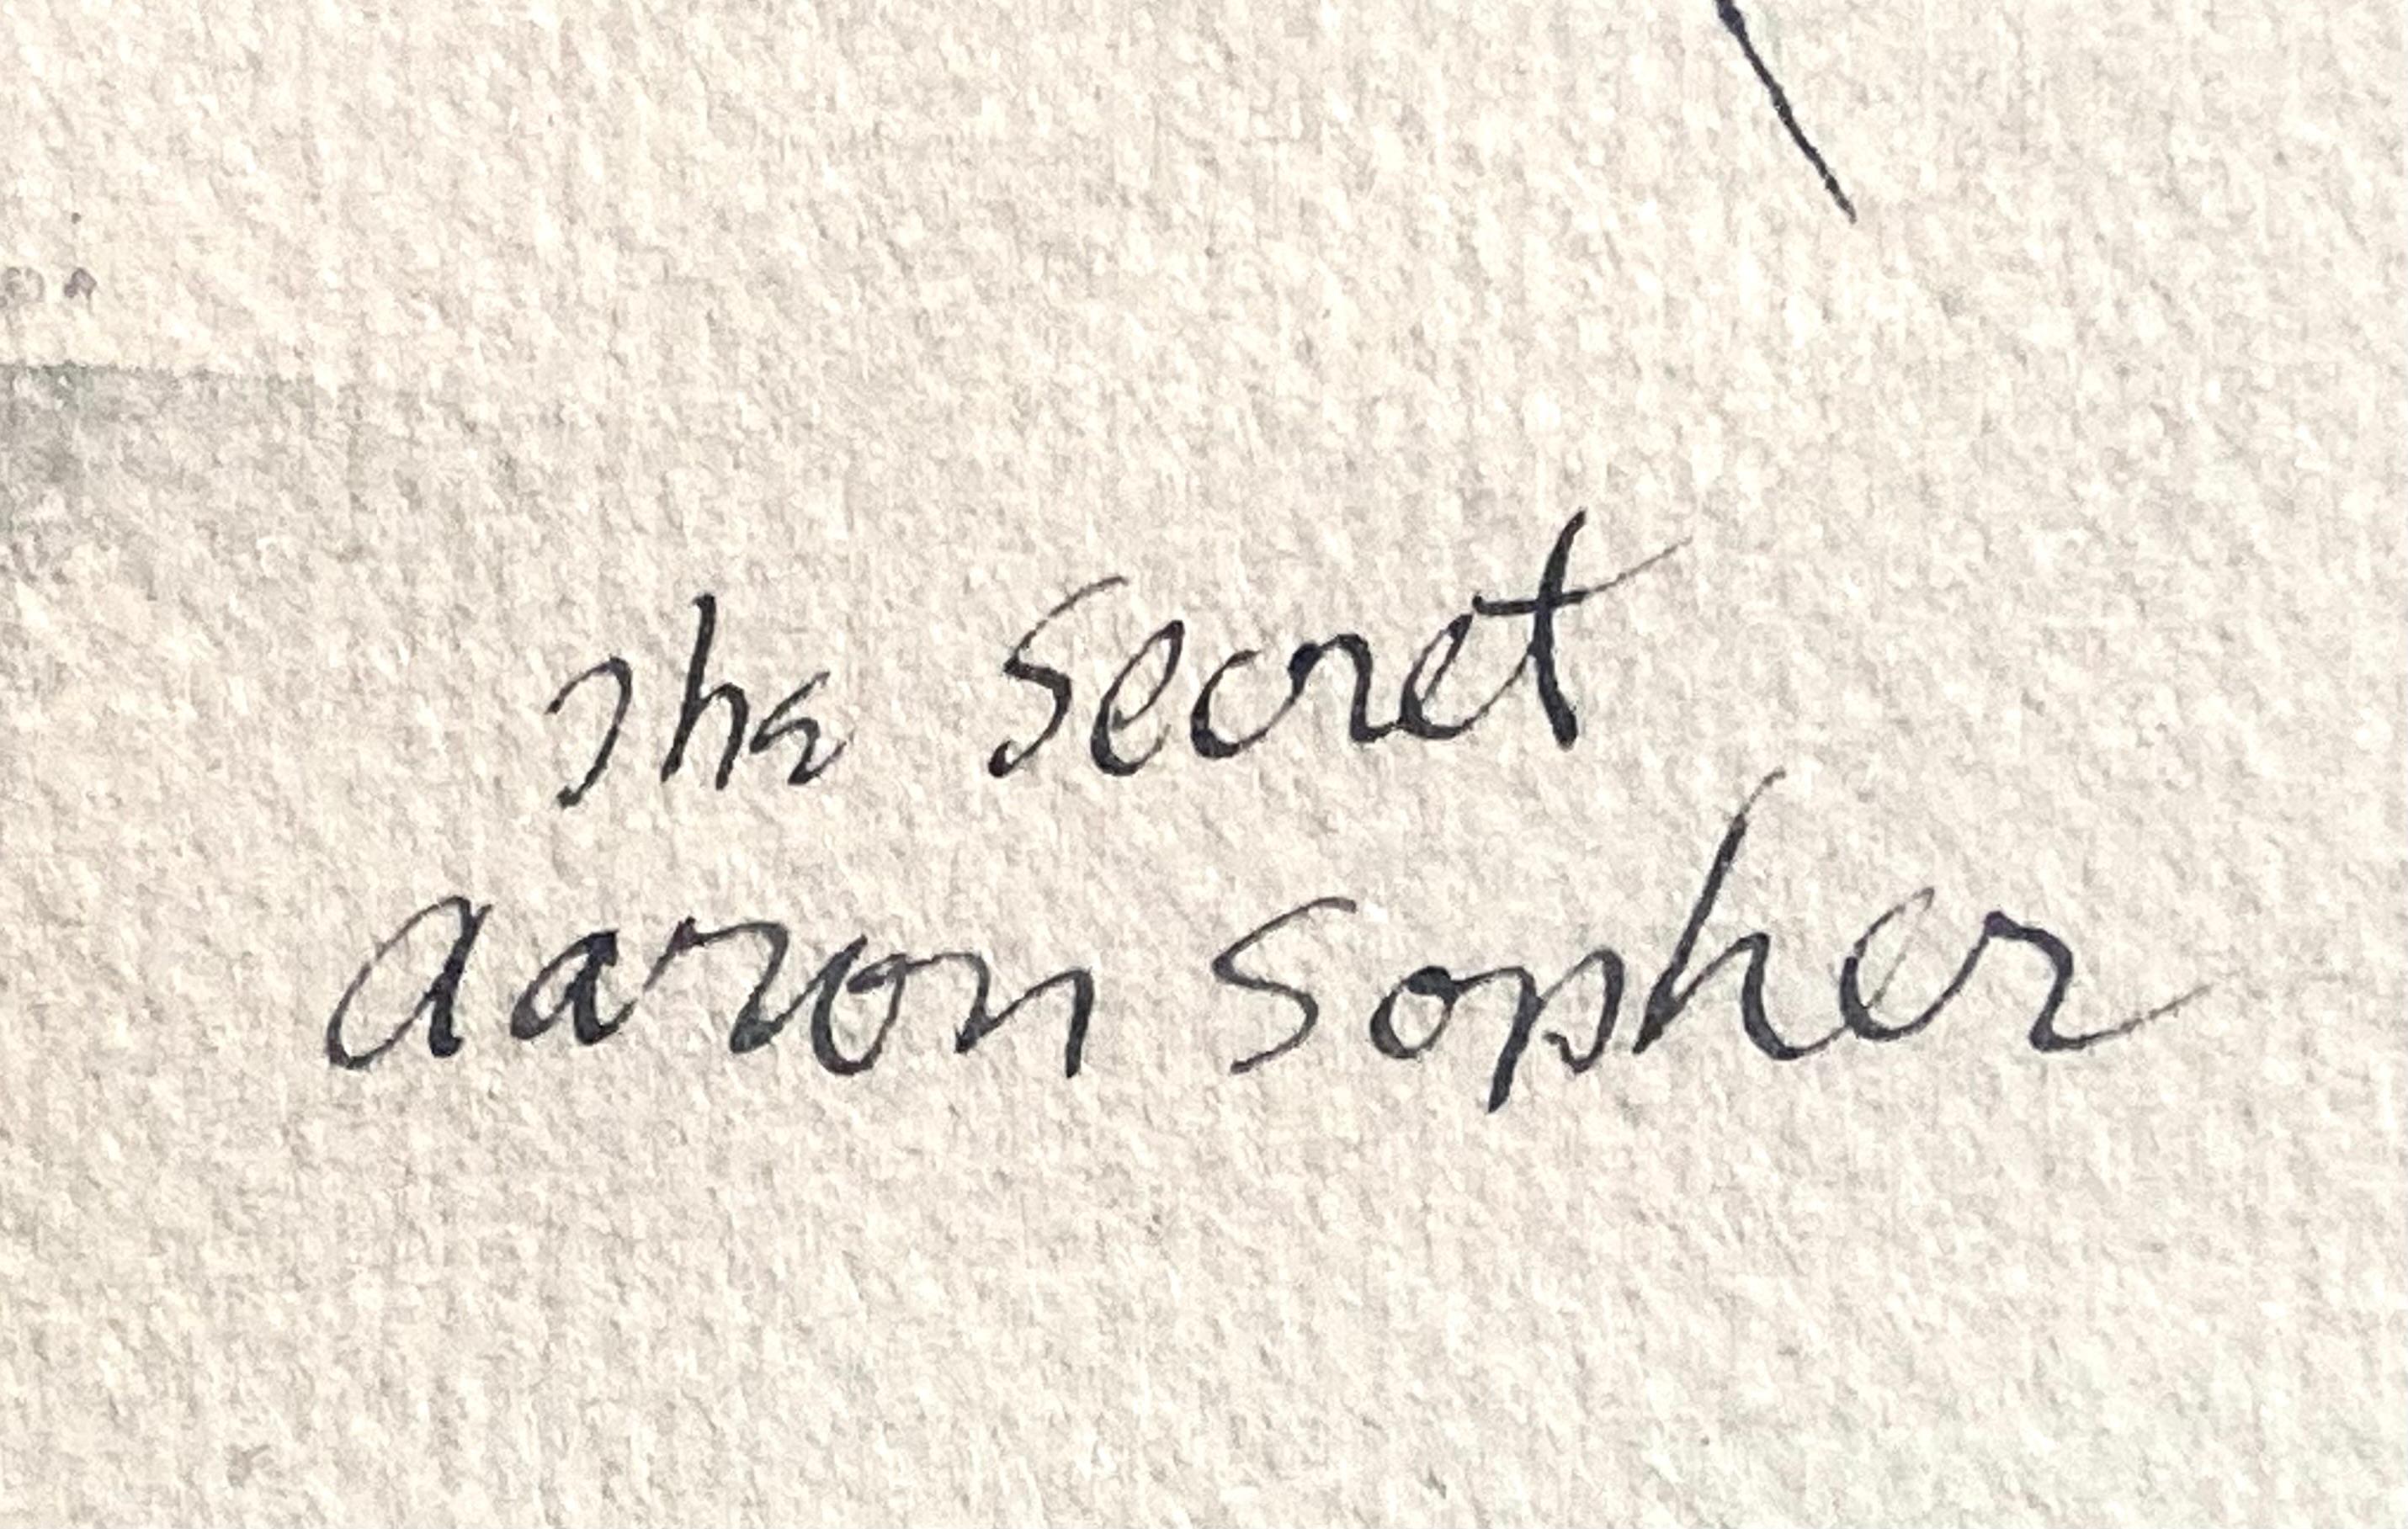 The Secret
Aaron Sopher